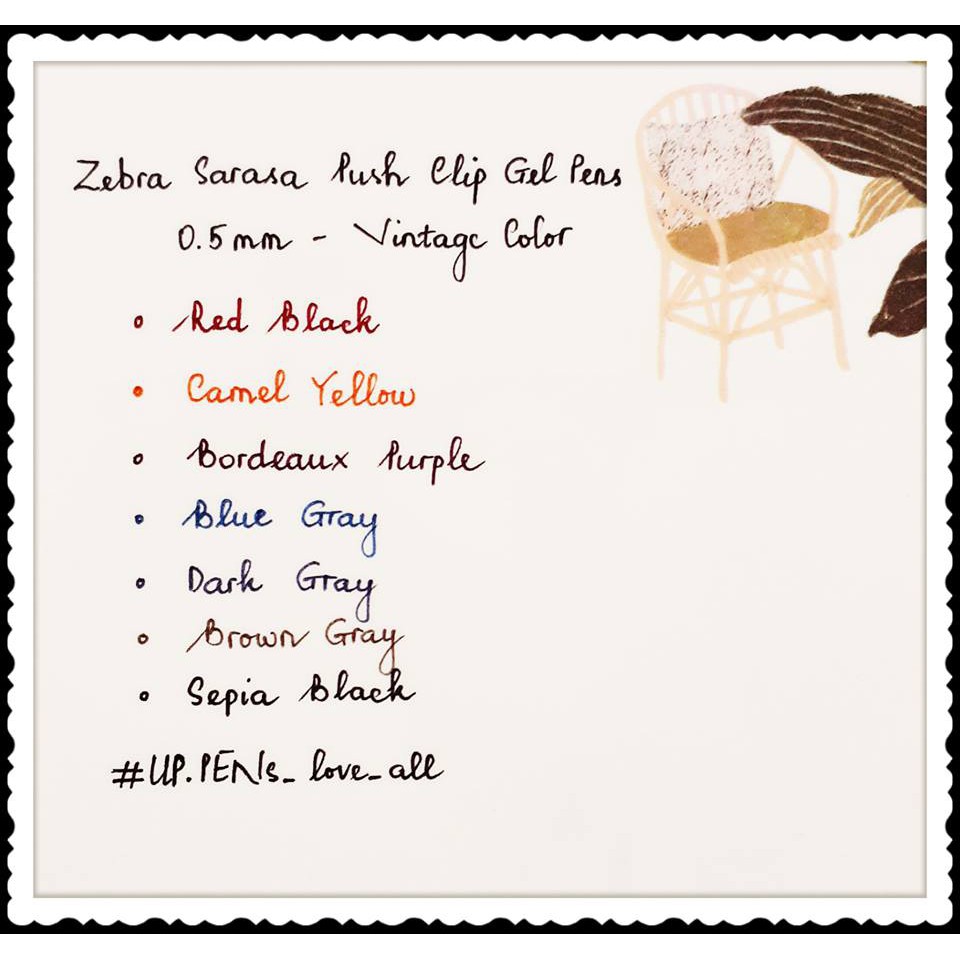 Zebra Sarasa Push Clip Gel Pens
0.5mm - Vintage Color
• Red Black
• Camel Yellow
• Bordeaux Purple
• Blue Gray
• Dark Gray
• Brown Gray
• Sepia Black
#UP.PENs_love_all